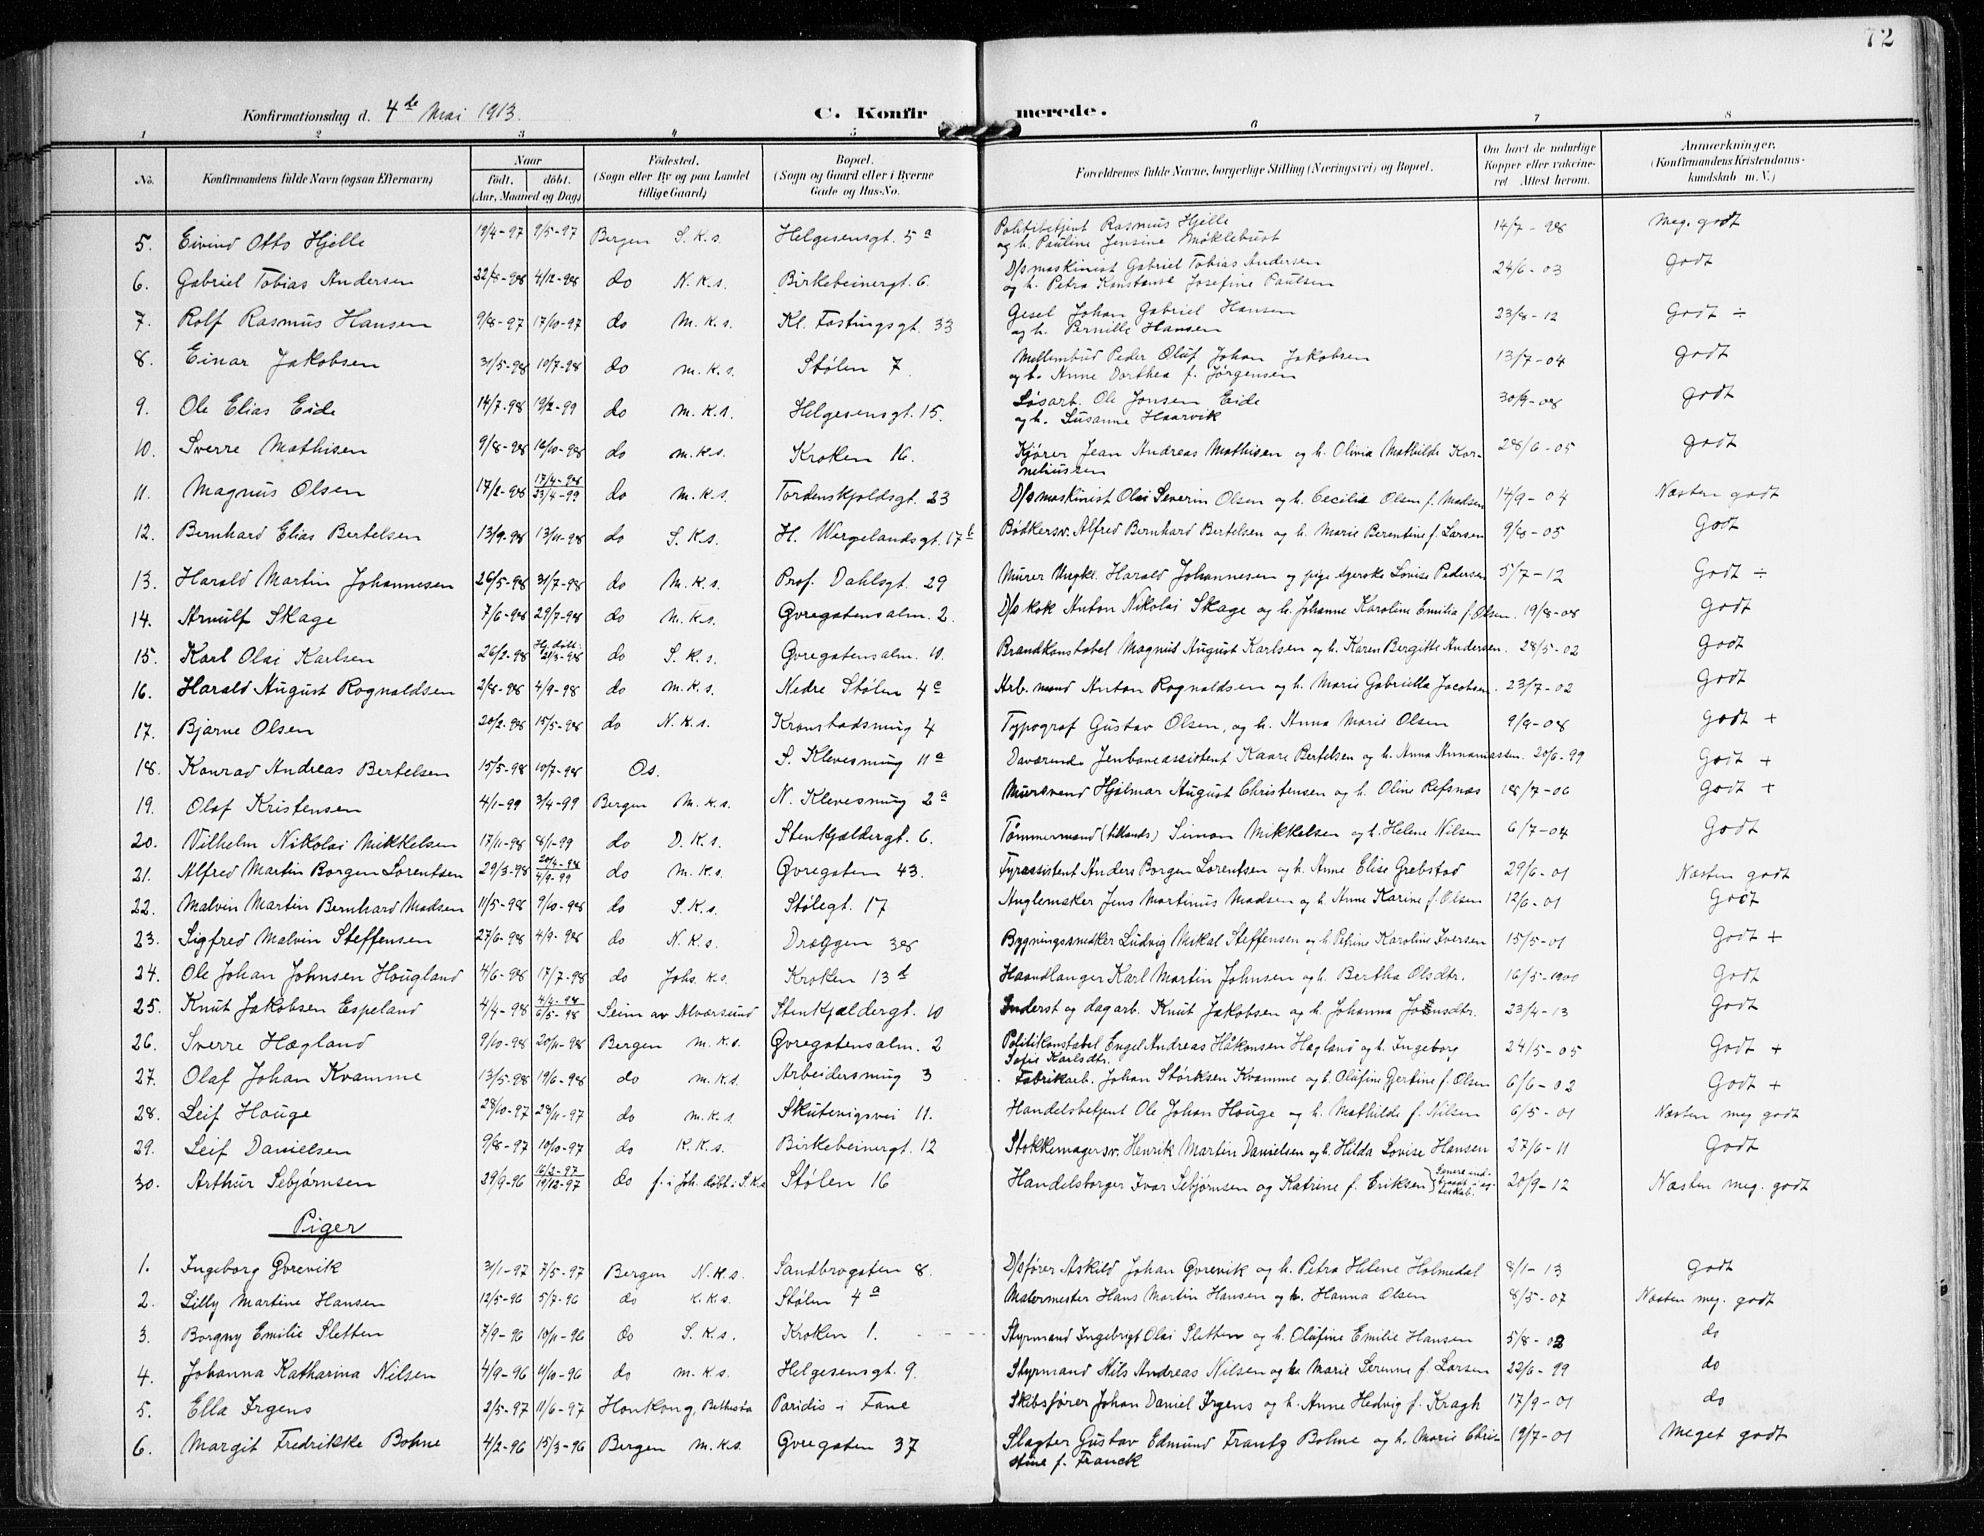 72
Konfirmationsdag d. 4de Mai 1913. C. Konfirmerede.
1 2 3 4 5 6 7 8
No. Konfirmandens fulde Navn (ogsaa Efternavn) Naar født. døbt. (Aar, Maaned og Dag) Fødested. (Sogn eller By og paa Landet tillige Gaard) Bopæl. (Sogn og Gaard eller i Byerne Gade og Hus-No. Forældrenes fulde Navne, borgerlige Stilling (Næringsvei) og Bopæl. Om havt de naturlige Kopper eller vakcineret Attest herom. Anmærkninger. (Konfirmandens Kristendomskundskab m. V.)
5. Eivind Otto Hjelle 19/4-97 9/5-97 Bergen S.k.s. Helgesensgt. 5a Politibetjent Rasmus Hjelle 14/7-98 Meg. godt
og h. Pauline Jensine Møklebust
6. Gabriel Tobias Andersen 22/8-98 4/12-98 do N.k.s. Birkebeinergt. 6. D/s maskinist Gabriel Tobias Andersen 24/6-03 Godt
og h. Petra Konstanse Josefine Paulsen
7. Rolf Rasmus Hansen 9/8-97 17/10-97 do M.k.s. Kl. Fostingsgt. 33 Gesel Johan Gabriel Hansen 23/8-12 Godt ÷
og h. Pernille Hansen
8. Einar Jakobsen 31/5-98 10/7-98 do M.k.s. Stølen 7 Mellembud Peder Oluf Johan Jakobsen 13/7-04 Godt
og h. Anne Dorthea f. Jørgensen
9. Ole Elias Eide 14/7-98 19/2-99 do M.k.s. Helgesensgt. 15. Løsarb. Ole Jonsen Eide 30/9-08 Godt
og h. Susanne Haarvik
10. Sverre Mathisen 9/8-98 16/10-98 do M.k.s. Kroken 16. Kjører Jean Andreas Mathisen og h. Olivia Mathilde Kor- 28/6-05 Godt
neliussen
11. Magnus Olsen 17/2-98 17/4-98 23/4-99 do M.k.s. Tordenskjoldsgt. 23 D/s maskinist Olai Severin Olsen og h. Cecilia Olsen f. Madsen 14/9-04 Næsten godt
12. Bernhard Elias Bertelsen 13/9-98 13/11-98 do S.k.s. H. Wergelandsgt. 17b Bødkersv. Alfred Bernhard Bertelsen og h. Marie Berentine f. Larsen 9/8-05 Godt
13. Harald Martin Johannesen 26/5-98 31/7-98 do M.k.s. Prof. Dahlsgt. 29 Murer Ungkl. Harald Johannesen og pige Lovise Pedersen 5/7-12 Godt ÷
14. Arnulf Skage 7/6-98 29/7-98 do M.k.s. Øvregatensalm. 2. D/s kok Anton Nikolai Skage og h. Johanne Karoline Emilia f. Olsen. 19/8-08 Godt
15. Karl Olai Karlsen 26/2-98 Hj. døbt 21/3-98 do S.k.s. Øvregatensalm. 10. Brandkonstabel Magnus August Karlsen og h. Karen Bergitte Andersen. 28/5-02 Godt
16. Harald August Rognaldsen 2/8-98 4/9-98 do M.k.s. Nedre Stølen 4c Arb. mand Anton Rognaldsen og h. Marie Gabriella Jacobsen. 23/7-02 Godt
17. Bjarne Olsen 20/2-98 15/5-98 do N.k.s. Kronstadsmug 4 Typograf Gustav Olsen, og h. Anna Marie Olsen 9/9-08 Godt +
18. Konrad Andreas Bertelsen 15/5-98 10/7-98 Os. S. Klevesmug 11a Daværende Jenbaneassistent Kaare Bertelsen og h. Anna Annaniassen. 20/6-99 Godt +
19. Olaf Kristensen 4/1-99 3/4-99 Bergen M.k.s. N. Klevesmug 2a Mursvend Hjalmar August Christensen og h. Oline Refsnæs 18/7-06 Godt +
20. Vilhelm Nikolai Mikkelsen 17/11-98 8/1-99 do D.k.s. Stenkjældergt. 6. Tømmermand (tillands) Simon Mikkelsen og h. Helene Nilsen 6/7-04 Godt
21. Alfred Martin Borgen Lorentsen 29/3-98 20/4-98 4/9-99 do M.k.s. Øvregaten 43. Fyrassistent Anders Borgen Lorentsen og h. Anne Elise Grebstad 29/6-01 Næsten godt
22. Malvin Martin Bernhard Madsen 11/5-98 9/10-98 do S.k.s. Stølegt. 17 Anglemaker Jens Martinus Madsen og h. Anne Karine f. Olsen 12/6-01 Godt
23. Sigfred Malvin Steffensen 27/6-98 4/9-98 do N.k.s. Dræggen 38 Bygningssnedker Ludvig Mikal Steffensen og h. Petrine Karoline Iversen 15/5-01 Godt +
24. Ole Johan Johnsen Hougland 4/6-98 17/7-98 do Johs. k.s. Kroken 13d Haandlanger Karl Martin Johnsen og h. Bertha Olsdtr. 16/5-1900 Godt
25. Knut Jakobsen Espeland 4/4-98 4/4-98 6/5-98 Seim av Alversund Stenkjældergt. 10 Inderst og dagarb. Knut Jakobsen og h. Johanna Jensdtr. 23/4-13 Godt
26. Sverre Hægland 9/10-98 20/11-98 Bergen M.k.s. Øvregatensalm. 2 Politikonstabel Engel Andreas Håkonsen Hægland og h. Ingeborg 24/5-05 Godt +
Sofie Karlsdtr.
27. Olaf Johan Kvamme 13/5-98 19/6-98 do M.k.s. Arbeidersmug 3 Fabrikarb. Johan Størksen Kvamme og h. Olufine Gjertine f. Olsen 6/6-02 Godt +
28. Leif Houge 28/10-97 28/11-97 do M.k.s. Skutevigsvei 11. Handelsbetjent Ole Johan Houge og h. Mathilde f. Nilsen 6/5-01 Næsten meg godt
29. Leif Danielsen 9/8-97 10/10-97 do K.k.s. Birkebeinergt. 12 Stokkemagersv. Henrik Martin Danielsen og h. Hilda Lovise Hansen 27/6-11 Godt
30. Arthur Sebjørnsen 29/9-96 16/2-97 19/12-97 do f. i Joh. døbt i S.k.s Stølen 16 Handelsborger Ivar Sebjørnsen og Katrine f. Eriksen 20/9-12 Næsten meg. godt
Piger
1. Ingeborg Øvrevik 31/1-97 7/5-97 Bergen N.k.s. Sandbrogaten 8. D/sfører Askild Johan Øvrevik og h. Petra Helene Holmedal 8/1-13 Godt
2. Lilly Martine Hansen 12/5-96 5/7-96 do K.k.s. Stølen 4a Malermester Hans Martin Hansen og h. Hanna Olsen 8/5-07 Næsten meg. godt
3. Borgny Emilie Sletten 7/9-96 10/11-96 do S.k.s. Kroken 1. Styrmand Ingebrigt Olai Sletten og h. Olufine Emilie Hansen 5/8-02 do
4. Johanna Katharina Nilsen 4/9-96 11/10-96 do M.k.s. Helgesensgt. 9. Styrmand Nils Andreas Nilsen og h. Marie Serenne f. Larsen 22/6-99 do
5. Ella Irgens 2/5-97 11/6-97 Honkong, Bethesta Paridis i Fane Skibsfører Johan Daniel Irgens og h. Anne Hedvig f. Kragh 17/9-01 do
6. Margit Fredrikke Bohne 4/2-96 15/3-96 Bergen M.k.s. Øvregaten 37 Slagter Gustav Edmund Frantz Bohne og h. Marie Chri- 19/7-01 Meget godt
stine f. Franck